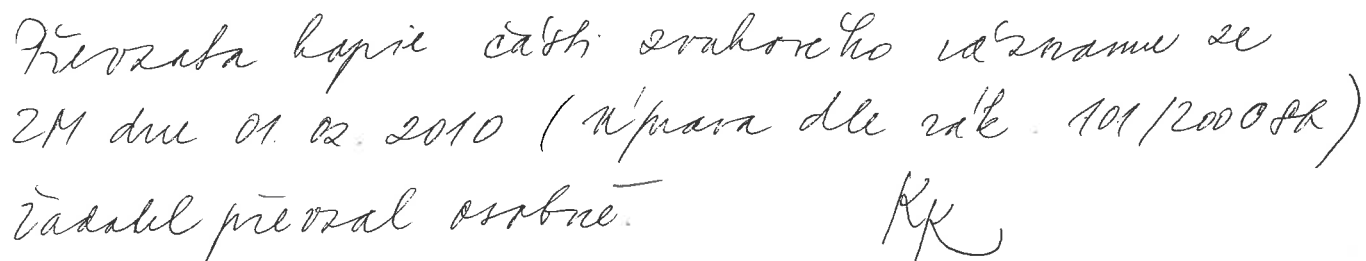 Převzata kopie části zvukového záznamu ze
ZM dne 01.02.2010 (úprava dle zák. 101/2000 Sb)
Žadatel převzal osobně. KK